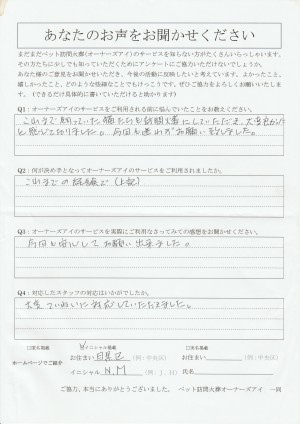 あなたのお声をお聞かせください
まだまだペット訪問火葬(オーナーズアイ)のサービスを知らない方がたくさんいらっしゃいます。
その方たちに少しでも知っていただくためにアンケートにご協力いただけないでしょうか。
あなた様のご意見をお聞かせいただき、今後の活動に反映したいと考えています。よかったこと、
嬉しかったこと、どのような些細なことでもけっこうです。ぜひご協力をよろしくお願いいたします。(できるだけ具体的に書いていただけると助かります)
Q1:オーナーズアイのサービスをご利用される前に悩んでいたことをお教えください。
これまで飼っていた猫たちも訪問火葬にしていただき、大変
と感じておりました。今回も迷わずお願い致しました。
Q2:何が決め手となってオーナーズアイのサービスをご利用されましたか。
これまでの経験で(上記)
Q3:オーナーズアイのサービスを実際にご利用なさってみての感想をお聞かせください。
今回も安心してお願い出来ました。
Q4:対応したスタッフの対応はいかがでしたか。
大変ていねいに対応していただきました。
□実名掲載 イニシャル掲載 □実名掲載
ホームページでご紹介
お住まい 目黒区 (例:中央区) お住まい (例:中央区)
イニシャル N.M (例:J.H) 氏名
ご協力、本当にありがとうございました。 ペット訪問火葬オーナーズアイ 一同